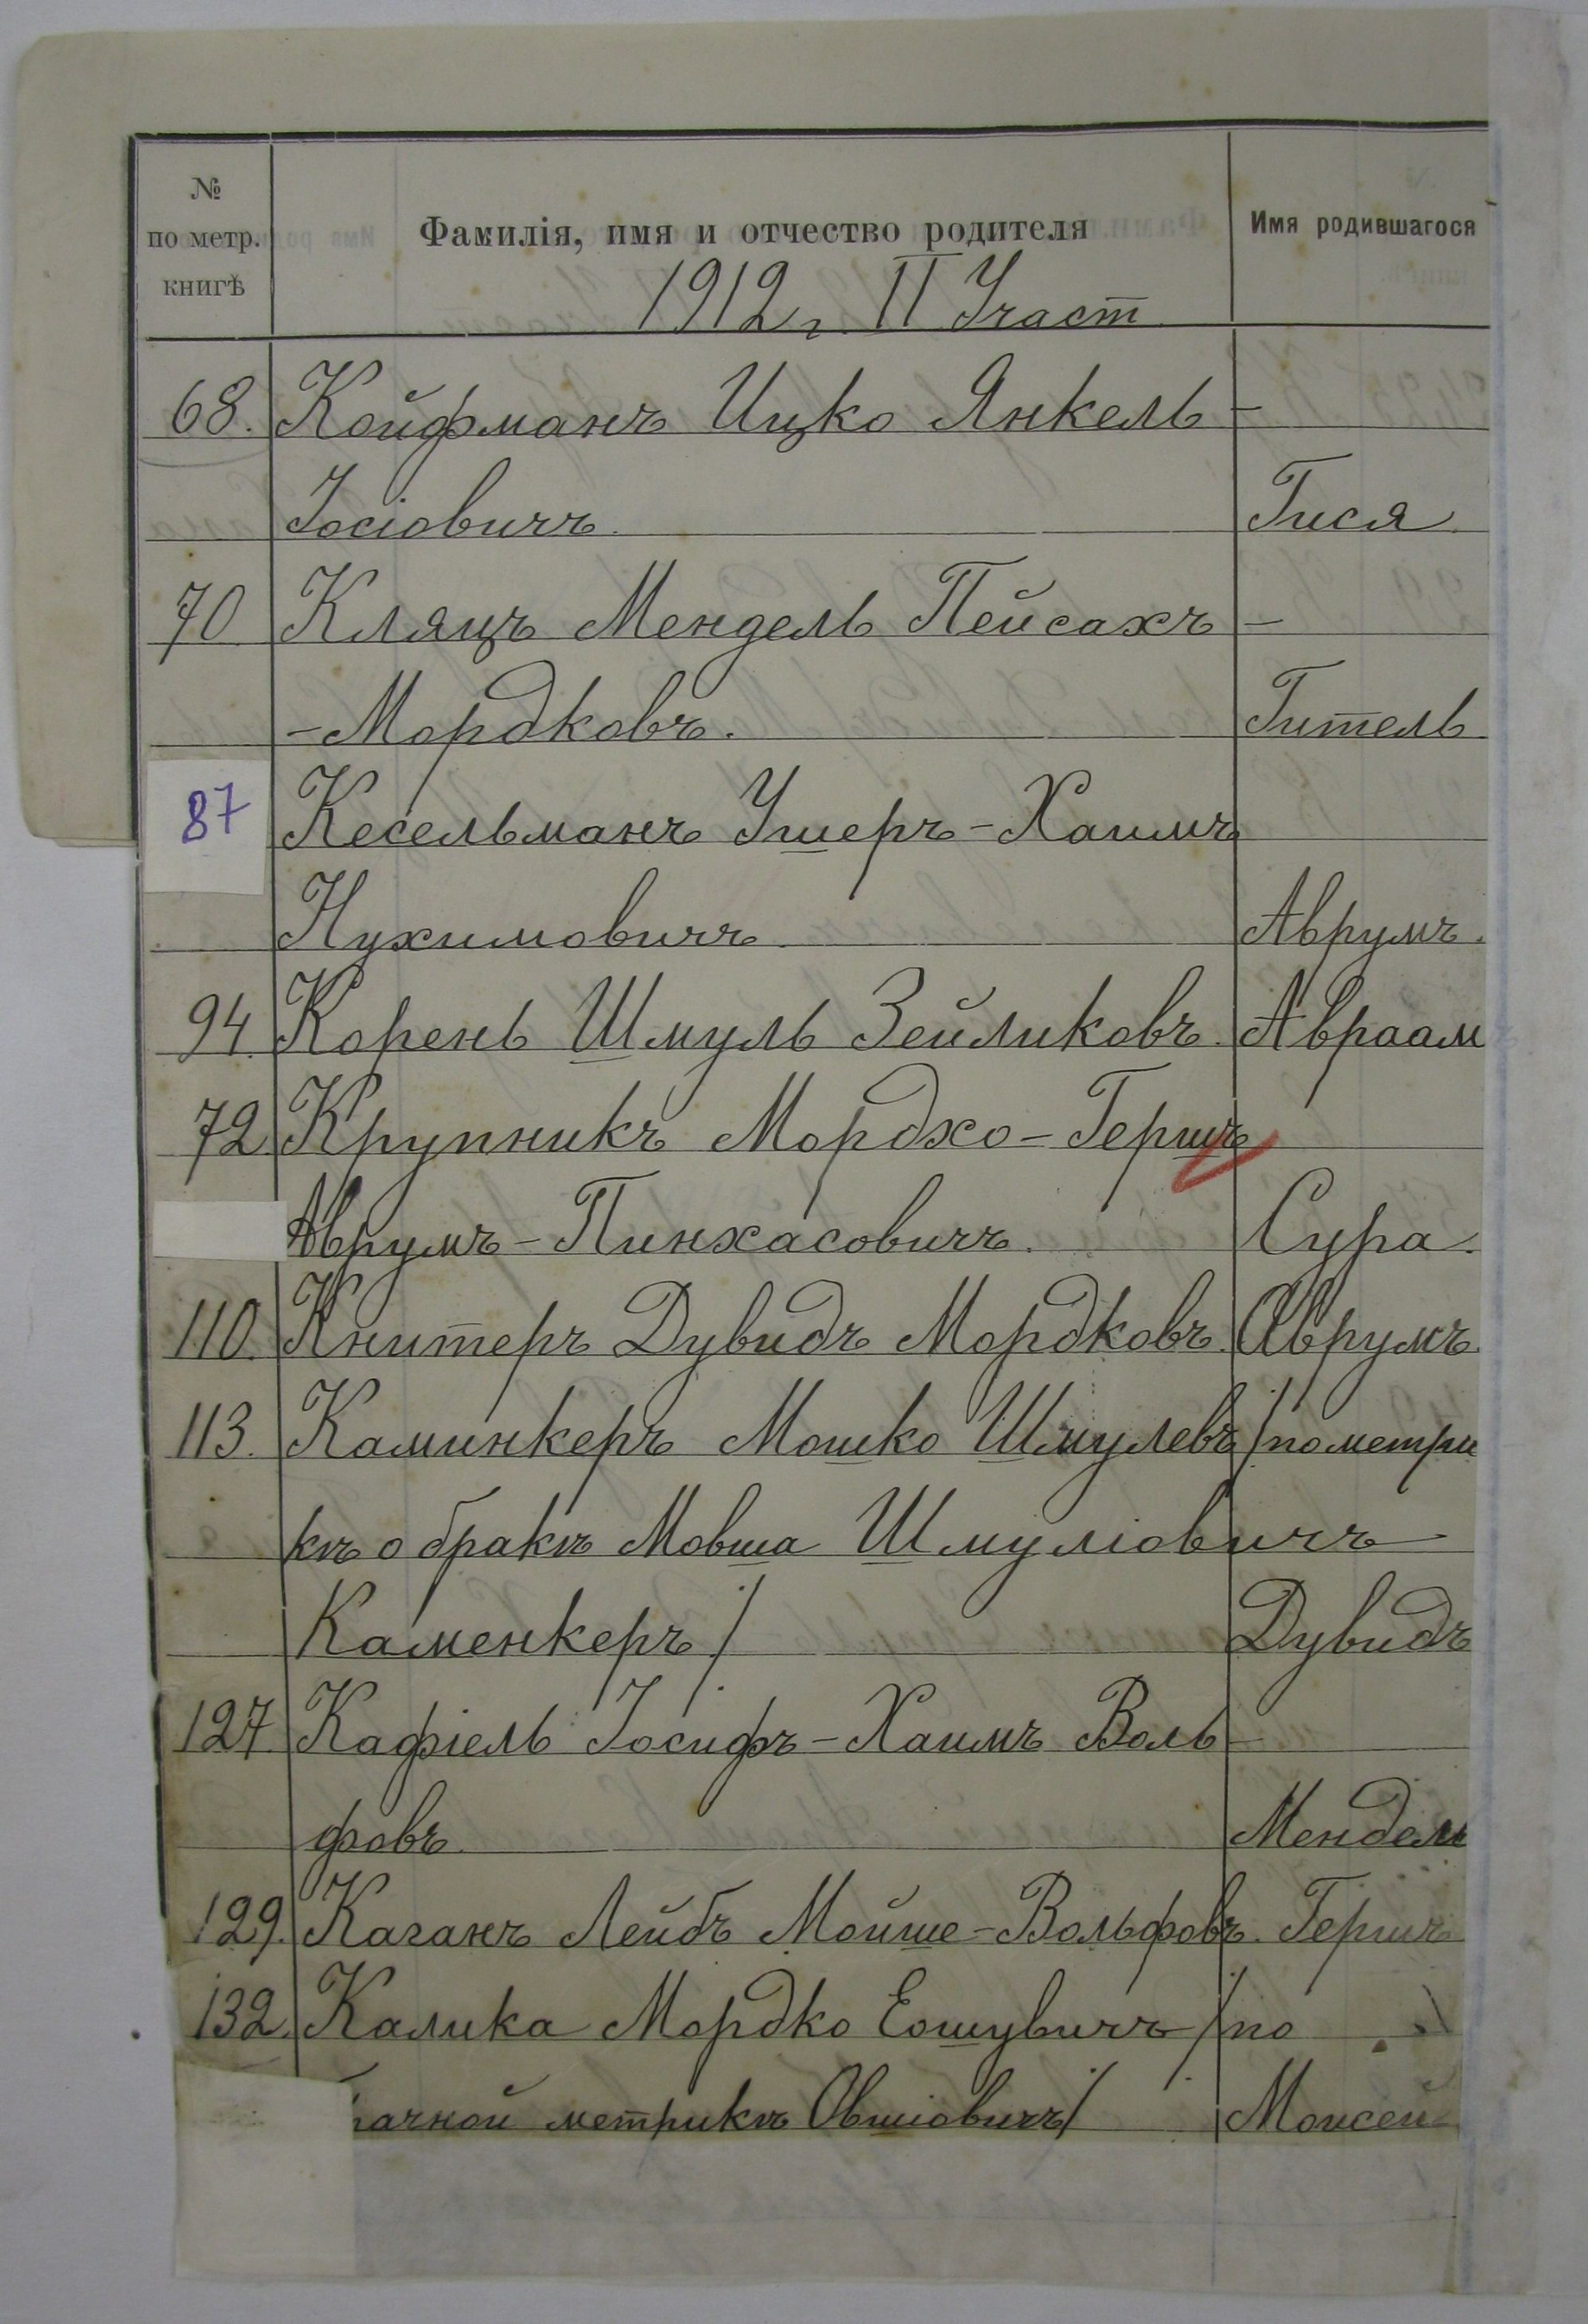 № по метр. книгѣ Фамилія, имя и отчество родителя Имя родившагося
1912 г. II Участ
68. Койфманъ Ицко Янкель -
Іосіовичъ. Гися
70 Кляцъ Мендель Пейсахъ -
-Мордковъ. Гитель
87 Кесельманъ Ушеръ-Хаимъ
Нухимовичъ Аврумъ.
94. Корень Шмуль Зейликовъ. Авраам
72 Крупникъ Мордхо-Гершъ
Аврумъ-Пинхасовичъ. Сура.
110. Книтеръ Дувидъ Мордковъ. Аврумъ.
113. Каминкеръ Мошко Шмулевъ /по метри
кѣ о бракѣ Мовша Шмуліовичъ
Каменкеръ/ Дувидъ
127 Кафіель Іосифъ-Хаимъ Воль-
фовъ Мендель
129. Каганъ Лейбъ Мойше-Вольфовъ. Гершъ
132. Калика Мордко Еошувичъ /по
ачной метрикѣ Овшіовичъ/ Моисей